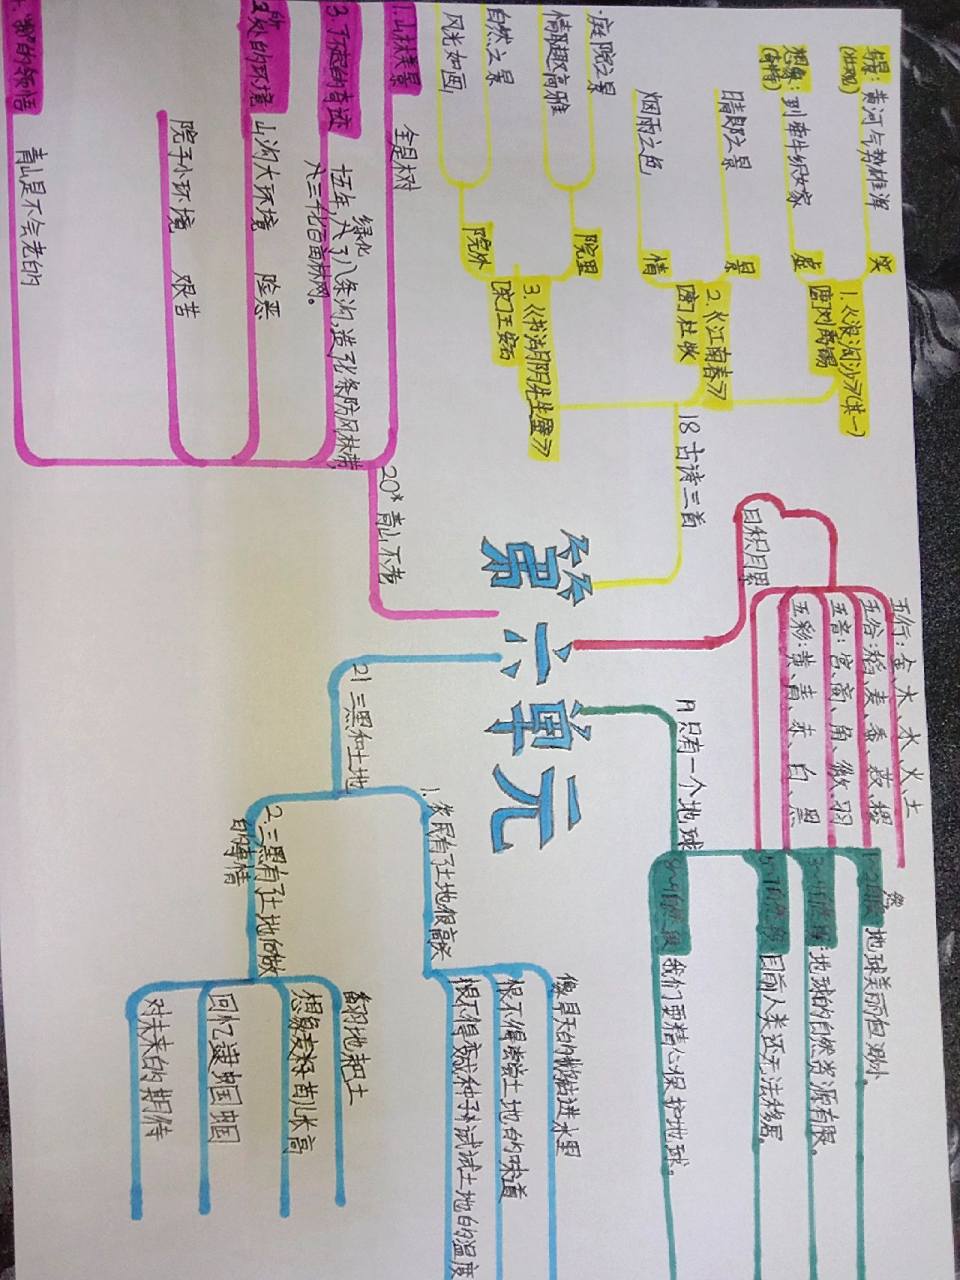 第六单元
18 古诗三首
1.《浪淘沙》(其一)
[唐]刘禹锡
实
黄河气势雄浑
虚
想象:到牵牛织女家
2.《江南春》
[唐]杜牧
景
晴朗之景
情
烟雨之色
3.《书湖阴先生壁》
[宋]王安石
院里
庭院之景
情趣高雅
院外
自然之景
风光如画
日积月累
五行:金、木、水、火、土
五谷:稻、麦、黍、菽、稷
五音:宫、商、角、徵、羽
五彩:黄、青、赤、白、黑
只有一个地球
1~2自然段
地球美丽但渺小。
:地球的自然资源有限。
目前人类还无法移居。
我们要精心保护地球。
20* 青山不老
1.山林美景
全是树
3.了不起的奇迹
绿化
八条沟,造了条防风林带,
2.所处的环境
山沟大环境 险恶
院子小环境 艰苦
的领悟
青山是不会老的
21 三黑和土地
1.农民有了土地很高兴
像旱天的鹅扑进水里
恨不得尝尝土地的味道
恨不得变成种子,试试土地的温度
2.三黑有了土地后做
的事情
翻地耙土
想象麦籽苗儿长高
回忆逮蝈蝈
对未来的期待